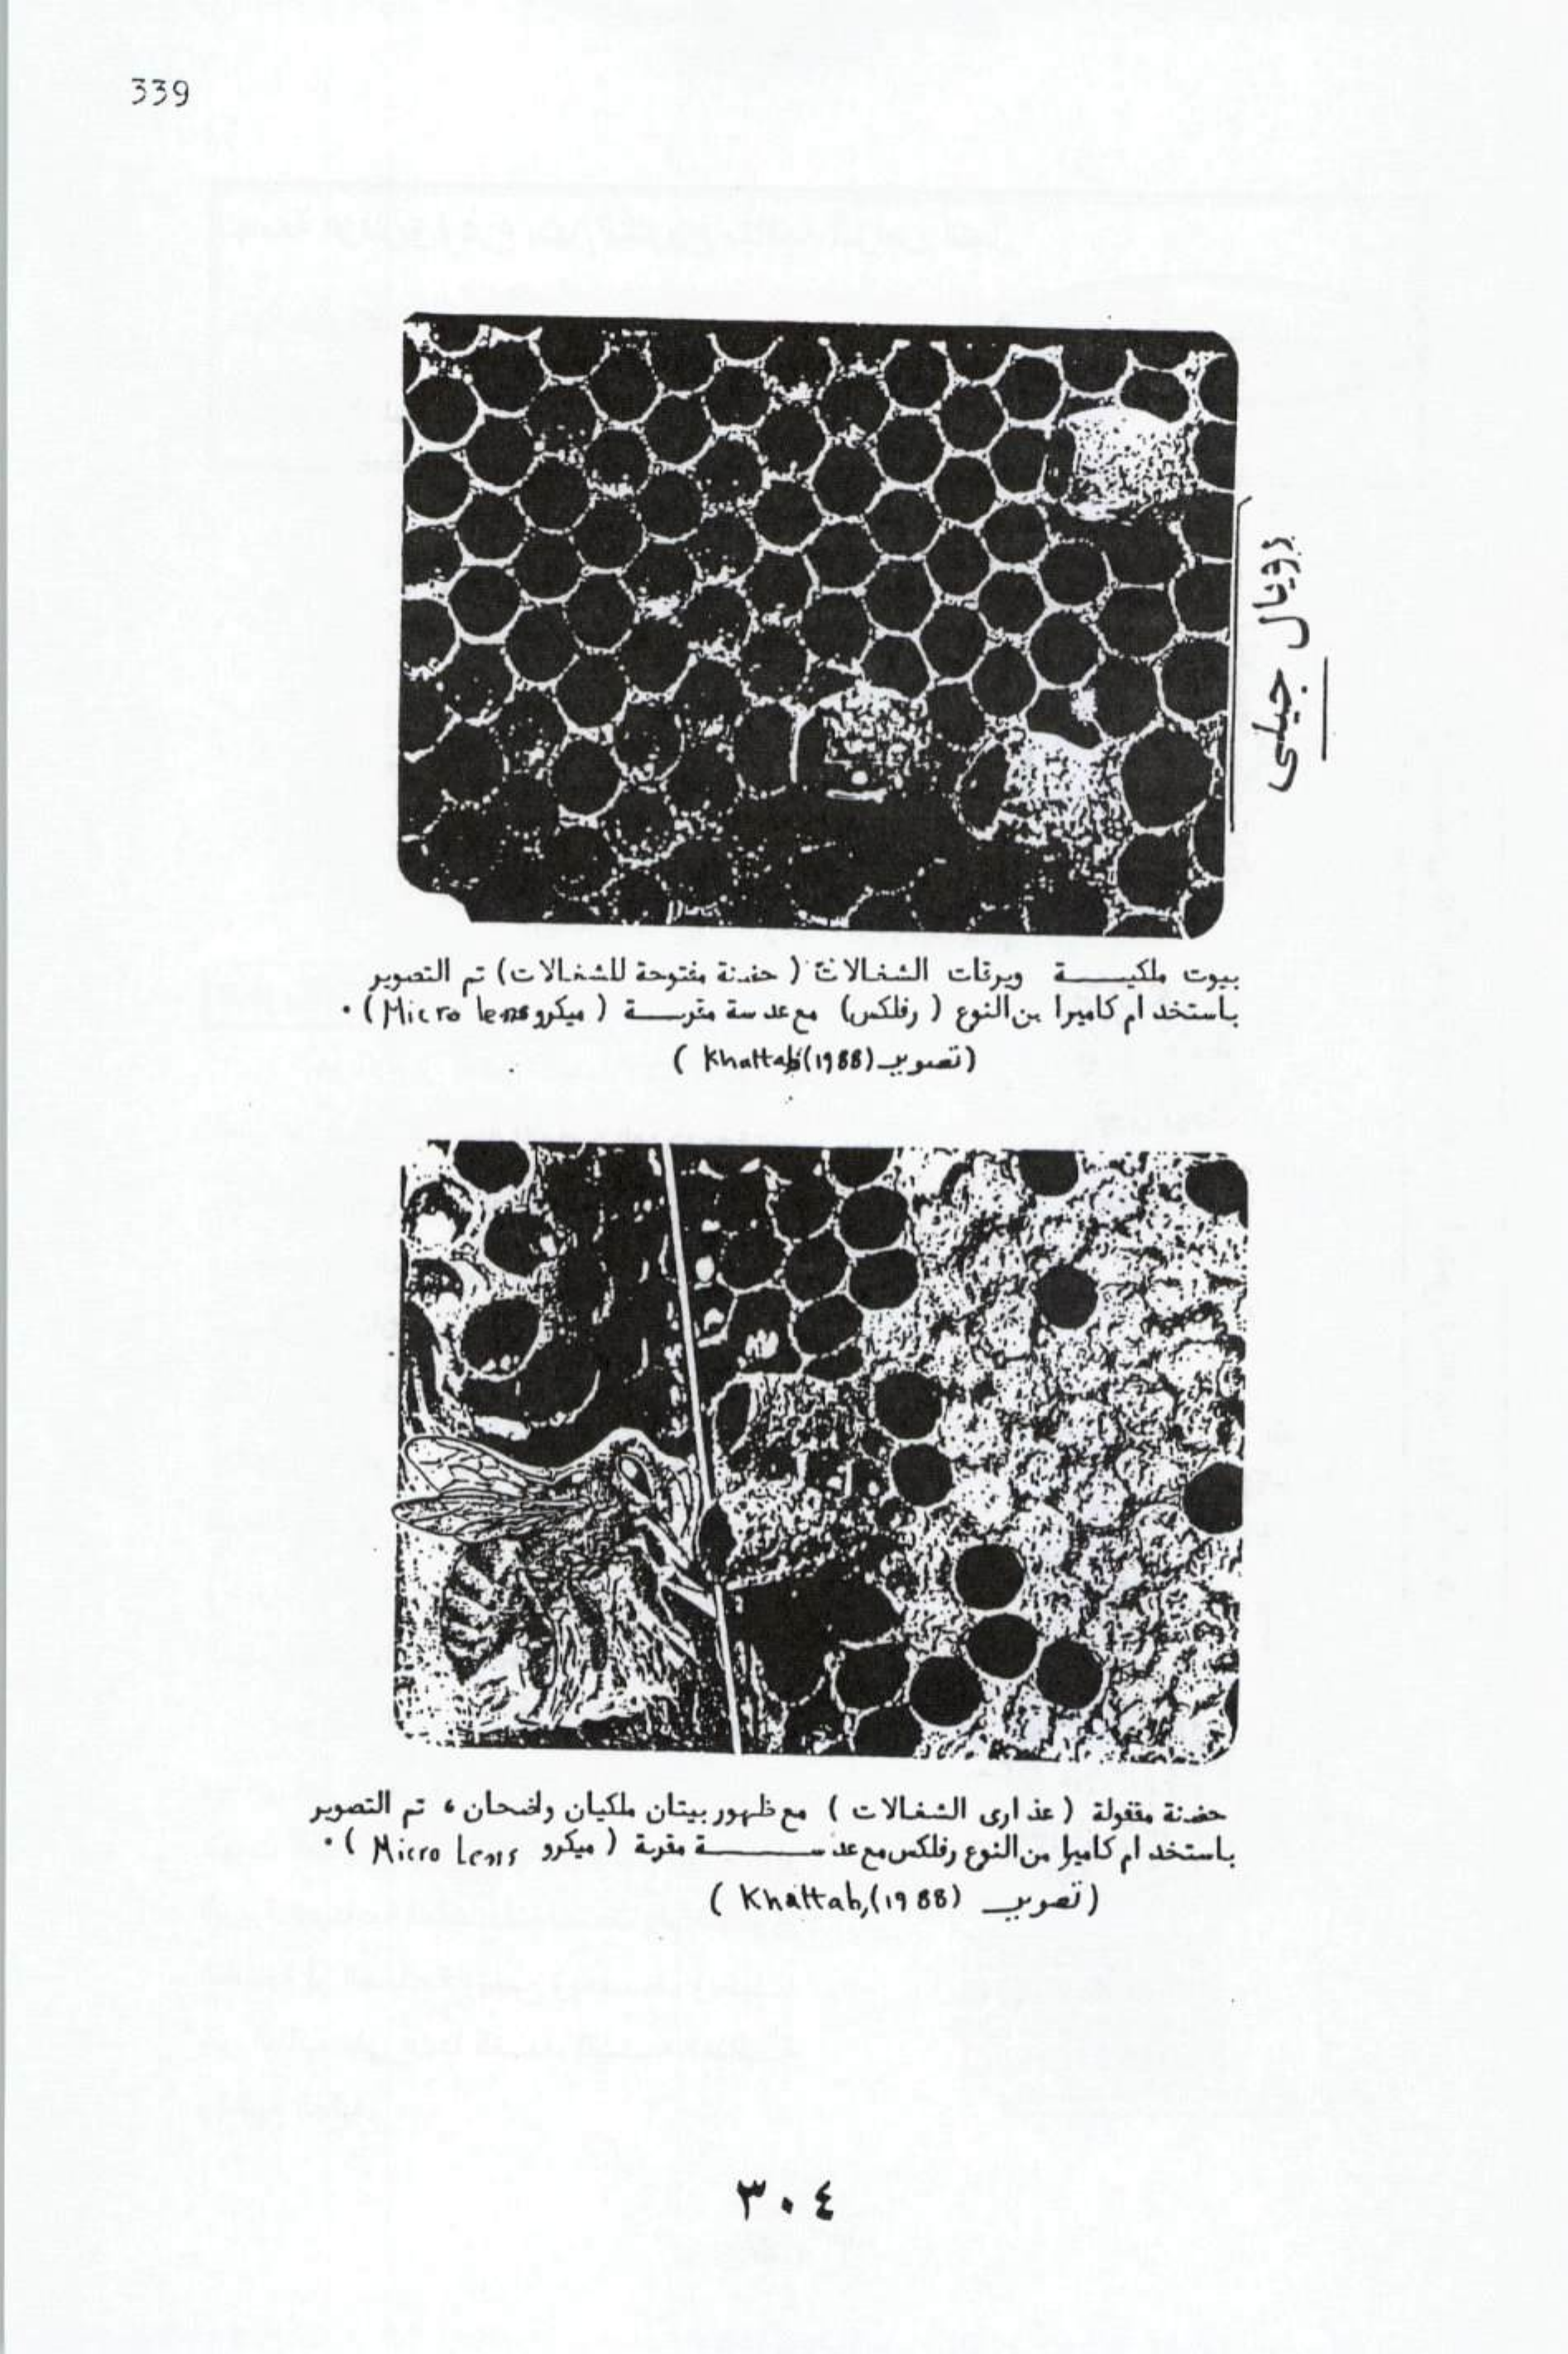 339
رويال جيلى
بيوت ملكيـــة ويرقات الشغالات ( حضنة مفتوحة للشغالات ) تم التصوير
باستخدام كاميرا من النوع ( رفلكس ) مع عدسة مقربـــة ( ميكرو Micro lens ) .
( تصوير Khattab (1988) )
حضنة مقفولة ( عذارى الشغالات ) مع ظهور بيتان ملكيان واضحان ، تم التصوير
باستخدام كاميرا من النوع رفلكس مع عدســـــة مقربة ( ميكرو Micro Lens ) .
( تصوير Khattab, (1988) )
٣٠٤